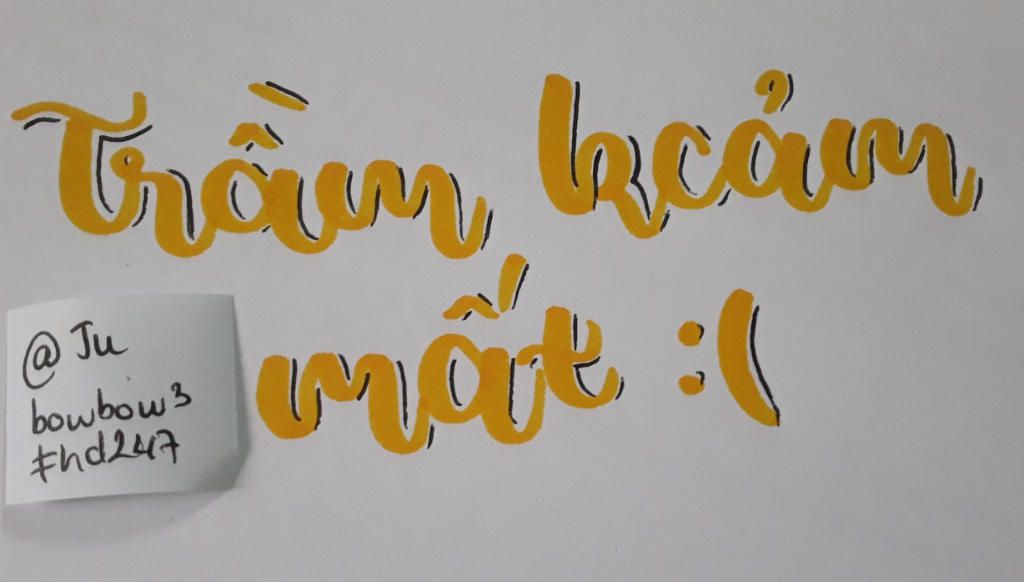 Trầm kcảm
mất :(
@Ju
bowbow3
#hd247